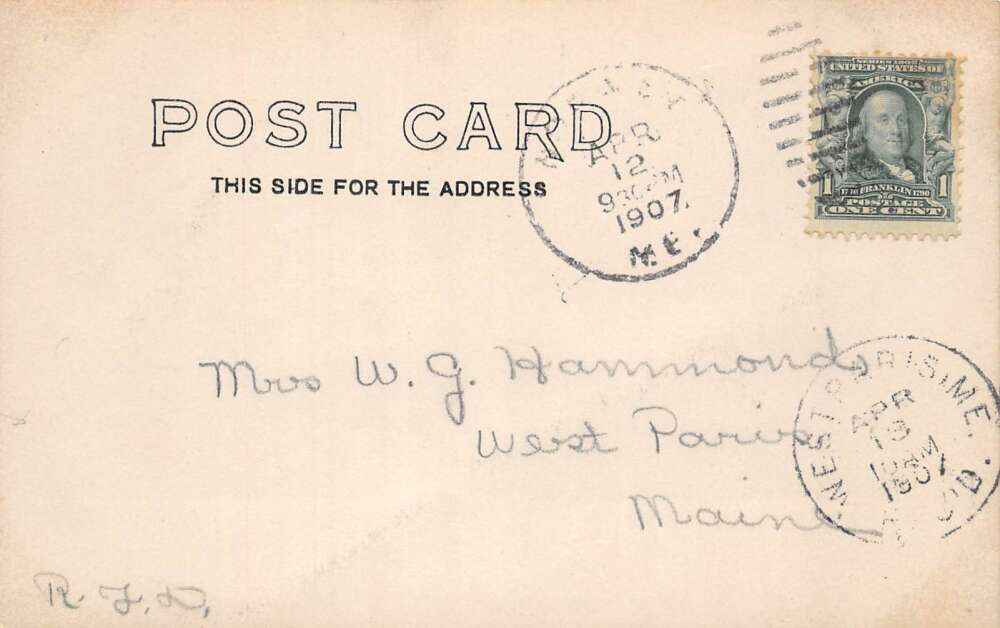 POST CARD
THIS SIDE FOR THE ADDRESS
APR
12
930 PM
1907.
ME.
SERIES 1902
UNITED STATES OF
AMERICA
1 1706 FRANKLIN 1790 1
POSTAGE
ONE CENT
Mrs W. G. Hammond,
West Paris
Maine
R. F. D.
WEST PARIS, ME.
APR
13
10 AM
1907
REC'D.